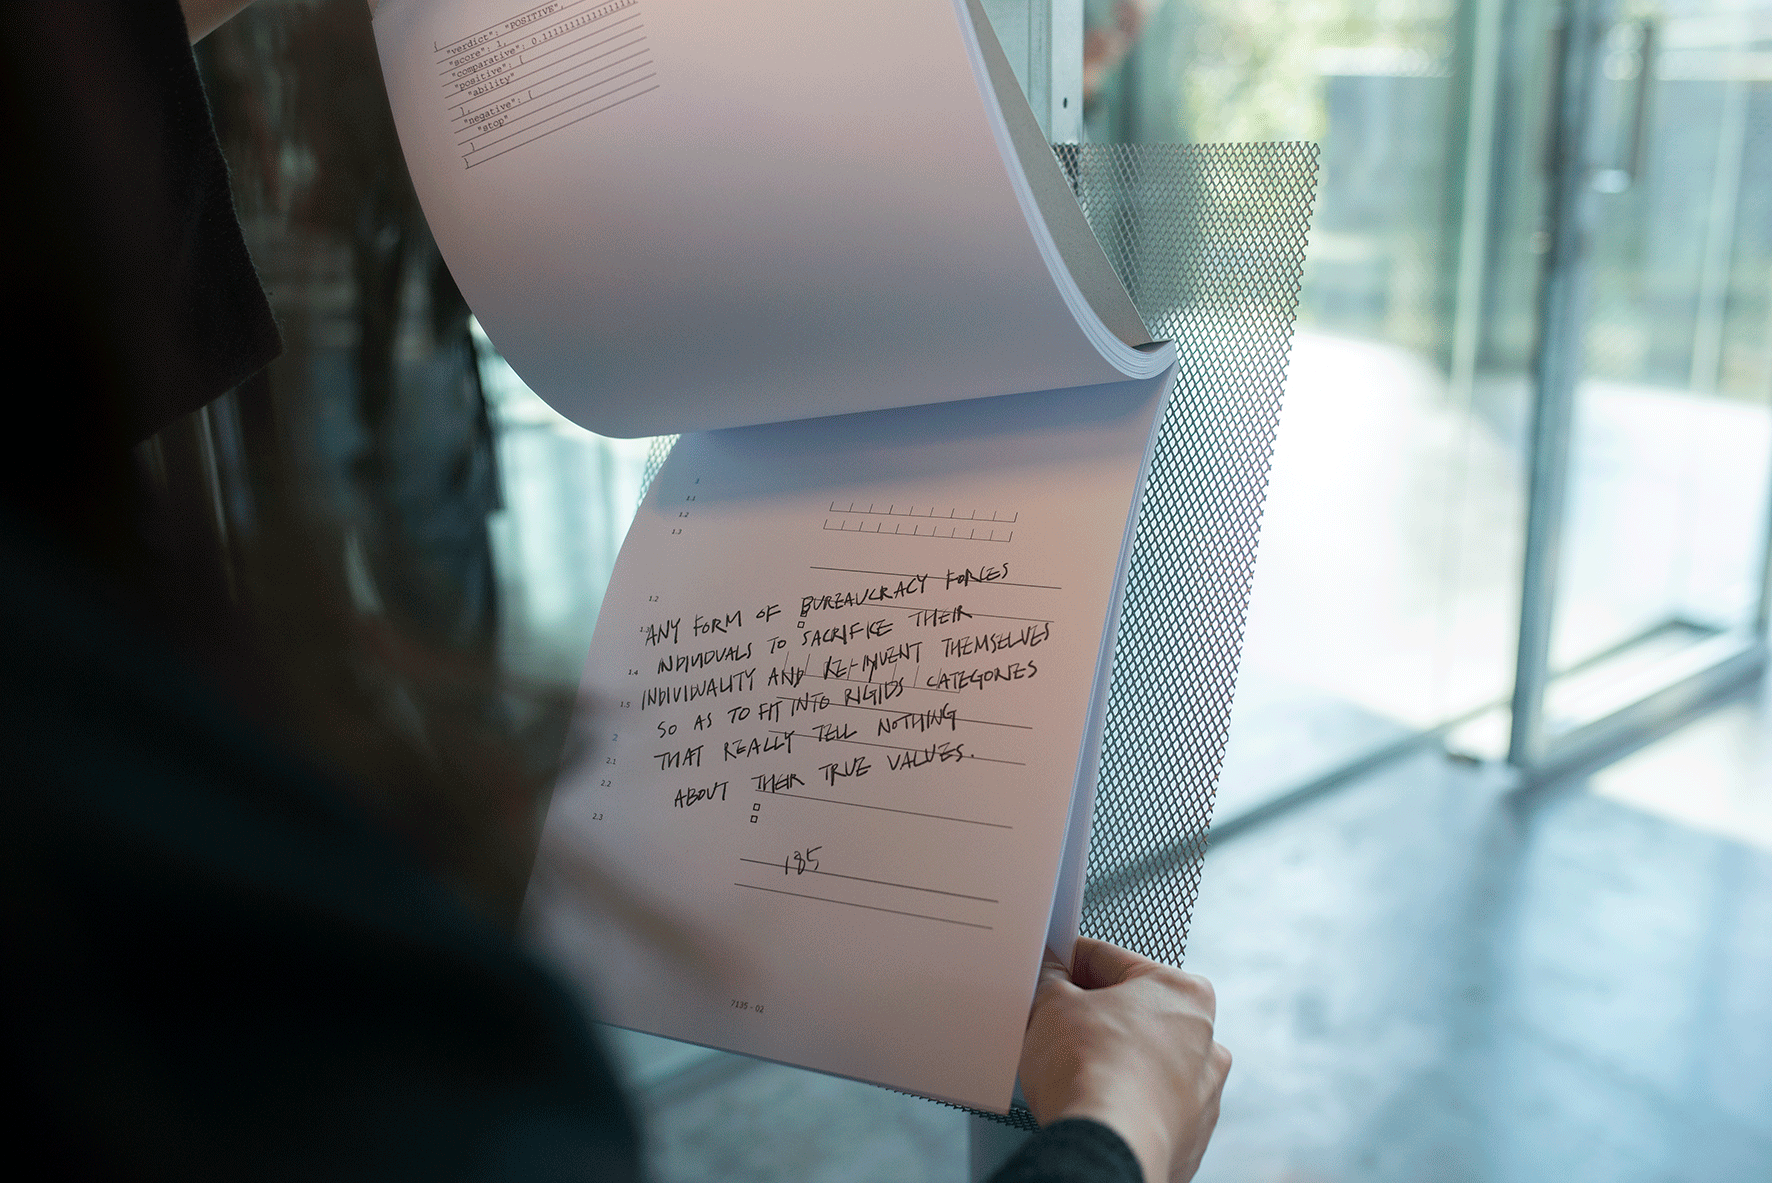 {
"verdict": "POSITIVE",
"score": 1,
"comparative": 0.1111111111111111,
"positive": [
"ability"
],
"negative": [
"stop"
]
}
1
1.1
1.2
1.3
1.2
1.3
1.4
1.5
2
2.1
2.2
2.3
ANY FORM OF BUREAUCRACY FORCES
INDIVIDUALS TO SACRIFICE THEIR
INDIVIDUALITY AND RE-INVENT THEMSELVES
SO AS TO FIT INTO RIGIDS CATEGORIES
THAT REALLY TELL NOTHING
ABOUT THEIR TRUE VALUES.
185
7135 - 02